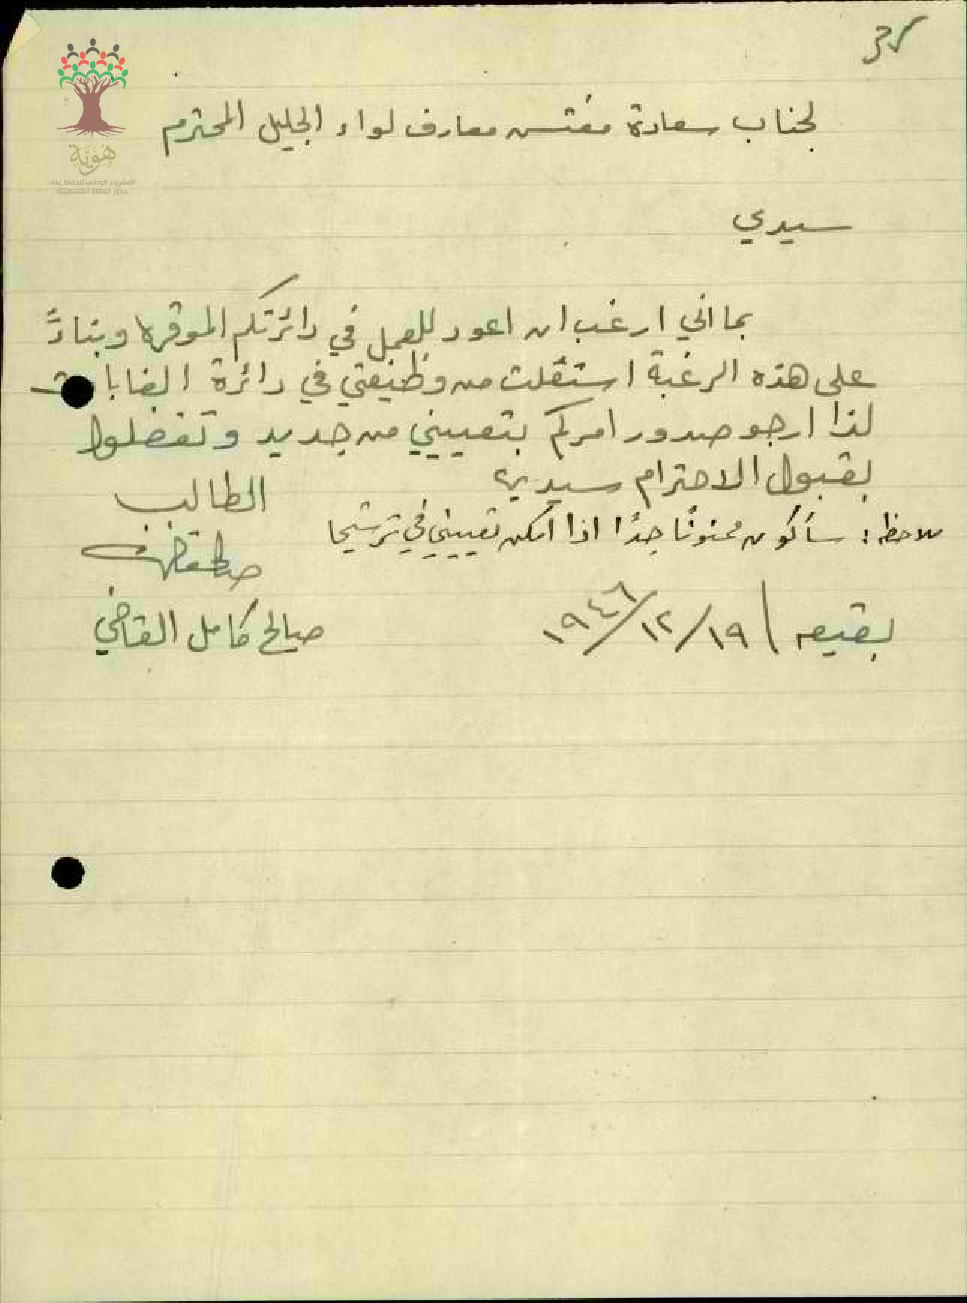 35
هوية
المشروع الوطني للحفاظ على
جذور العائلة الفلسطينية
لجناب سعادة مفتش معارف لواء الجليل المحترم
سيدي
بما اني ارغب ان اعود للعمل في دائرتكم الموقره وبناءً
على هذه الرغبة استقلت من وظيفتي في دائرة الغابات
لذا ارجو صدور امركم بتعييني من جديد وتفضلوا
بقبول الاحترام سيدي
الطالب
ملاحظه: سأكون ممنونًا جدًا اذا امكن تعييني في ترشيحا
بقيعه ١٩/١٢/١٩٤٦
صالح كامل القاضي